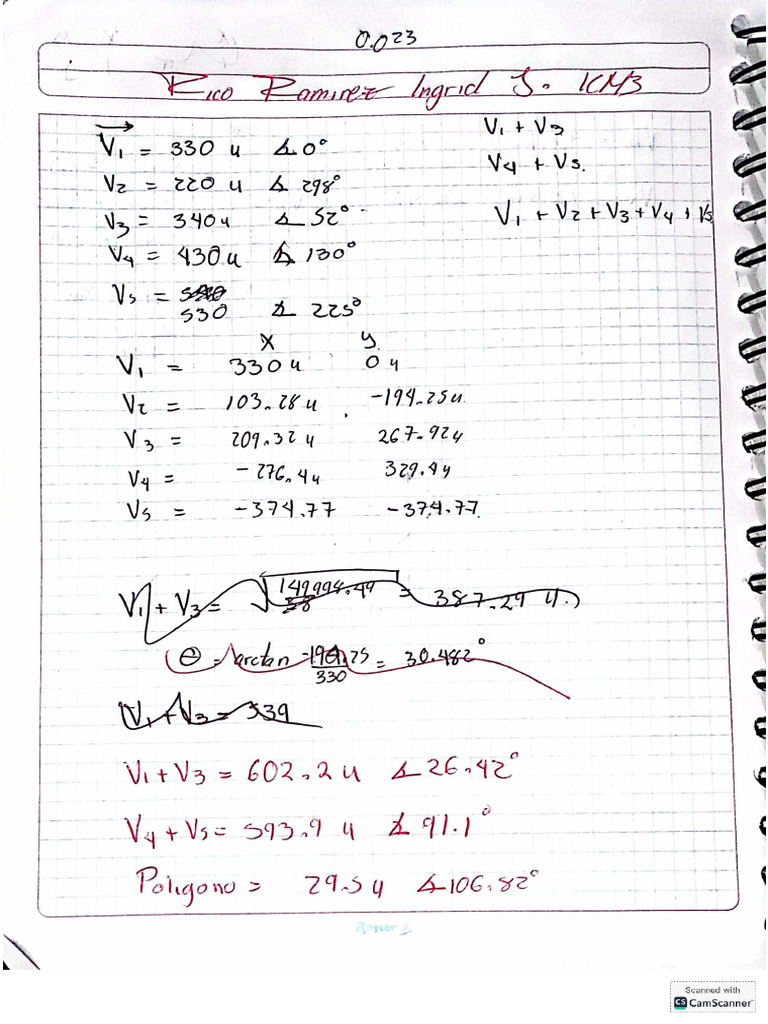 0.023
Rico Ramirez Ingrid J. 1CM3
V1 = 330 u ∡ 0°
V1 + V3
V2 = 220 u ∡ 298°
V4 + V5.
V3 = 340u ∡ 52°
V1 + V2 + V3 + V4 + V5
V4 = 430 u ∡ 130°
V5 =
530 ∡ 225°
X y
V1 = 330 u 0 u
V2 = 103.28 u -194.25u
V3 = 209.32 u 267.92u
V4 = -276.4u 329.4u
V5 = -374.77 -374.77
V1 + V3 = √149998.49 = 387.29 u.
θ = arctan -194.25 = 30.482°
330
V1 + V3 = 339
V1 + V3 = 602.2 u ∡ 26.42°
V4 + V5 = 593.9 u ∡ 91.1°
Poligono = 29.5 u ∡ 106.82°
Scanned with
CS CamScanner